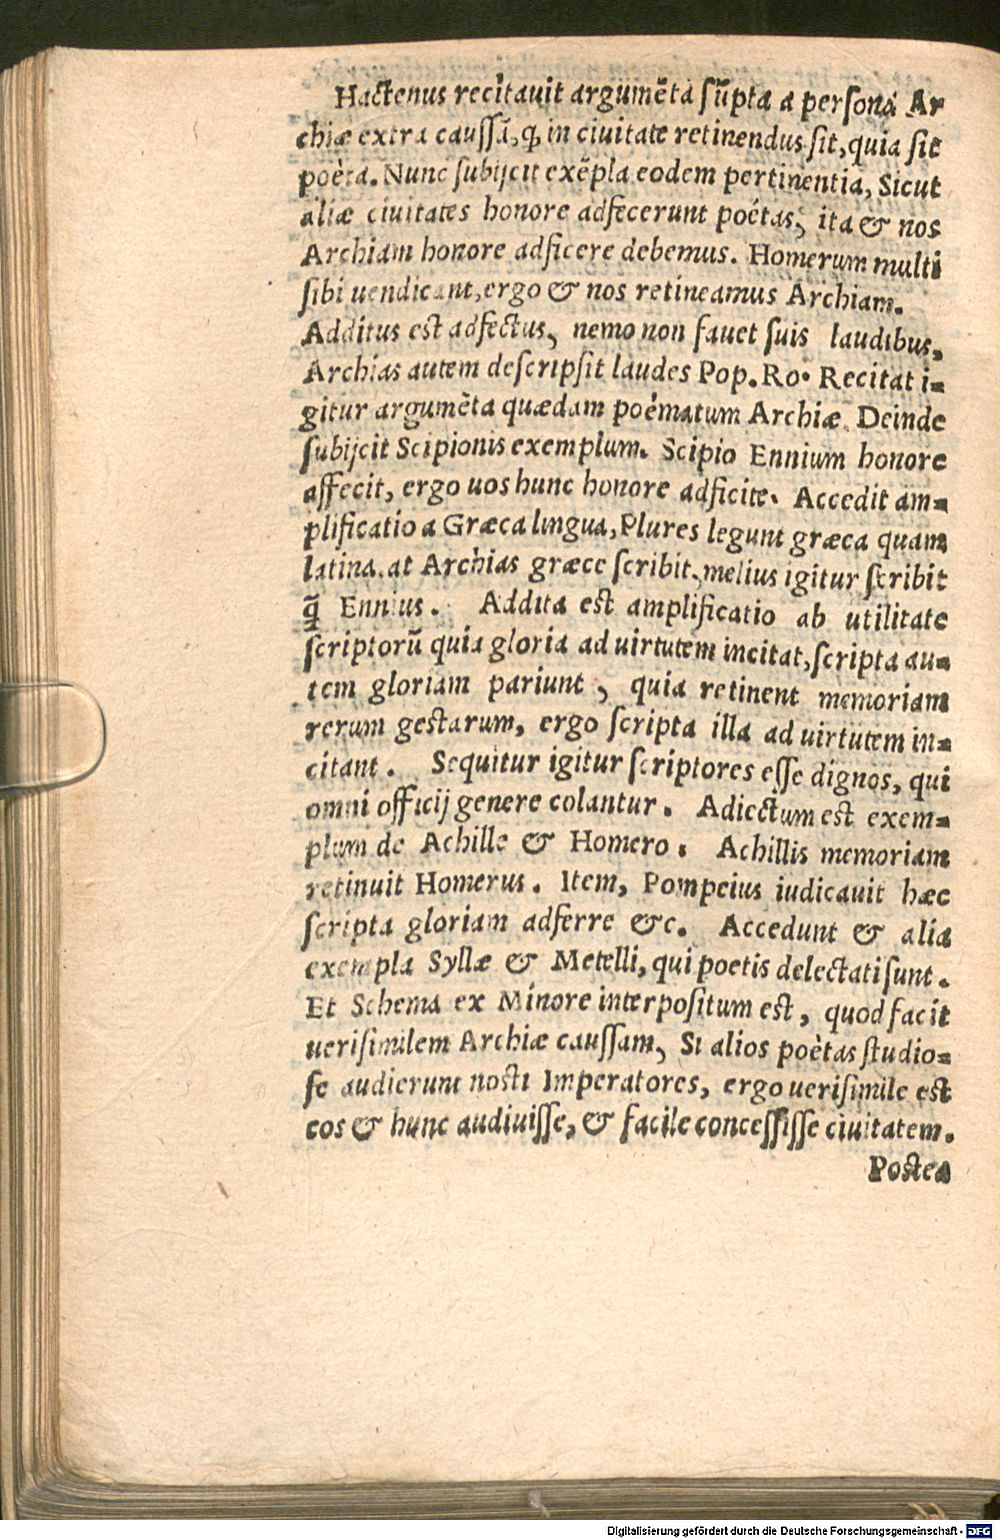 Hactenus recitauit argumẽta sũpta a persona Ar
chiæ extra caussã, ꝙ in ciuitate retinendus sit, quia sit
poëta. Nunc subijcit exẽpla eodem pertinentia, Sicut
aliæ ciuitates honore adfecerunt poétas, ita & nos
Archiam honore adficere debemus. Homerum multi
sibi uendicant, ergo & nos retineamus Archiam.
Additus est adfectus, nemo non fauet suis laudibus,
Archias autem descripsit laudes Pop. Ro. Recitat i-
gitur argumẽta quædam poëmatum Archiæ. Deinde
subijcit Scipionis exemplum. Scipio Ennium honore
affecit, ergo uos hunc honore adficite. Accedit am-
plificatio a Græca lingua, Plures legunt græca quam
latina. at Archias græce scribit, melius igitur scribit
q̃ Ennius. Addita est amplificatio ab utilitate
scriptorũ quia gloria ad uirtutem incitat, scripta au-
tem gloriam pariunt, quia retinent memoriam
rerum gestarum, ergo scripta illa ad uirtutem in-
citant. Sequitur igitur scriptores esse dignos, qui
omni officij genere colantur. Adiectum est exem-
plum de Achille & Homero. Achillis memoriam
retinuit Homerus. Item, Pompeius iudicauit hæc
scripta gloriam adferre &c. Accedunt & alia
exempla Syllæ & Metelli, qui poetis delectati sunt.
Et Schema ex Minore interpositum est, quod facit
uerisimilem Archiæ caussam, Si alios poëtas studio-
se audierunt nostri Imperatores, ergo uerisimile est
eos & hunc audiuisse, & facile concessisse ciuitatem.
Postea
Digitalisierung gefördert durch die Deutsche Forschungsgemeinschaft - DFG